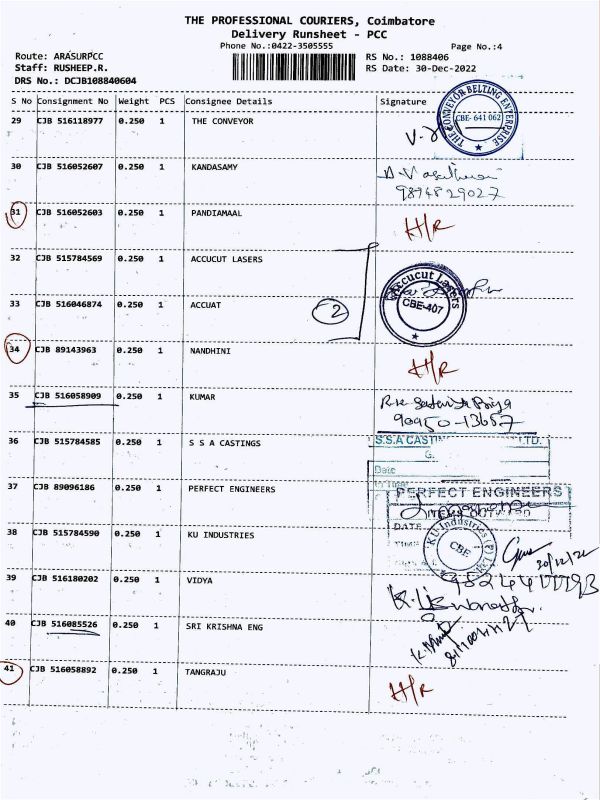 THE PROFESSIONAL COURIERS, Coimbatore
Delivery Runsheet - PCC
Phone No.:0422-3505555 Page No.:4
Route: ARASURPCC RS No.: 1088406
Staff: RUSHEEP.R. RS Date: 30-Dec-2022
DRS No.: DCJB108840604
S No Consignment No Weight PCS Consignee Details Signature
29 CJB 516118977 0.250 1 THE CONVEYOR
THE CONVEYOR BELTING ENTERPRISE
CBE- 641 062
30 CJB 516052607 0.250 1 KANDASAMY
9894829027
31 CJB 516052603 0.250 1 PANDIAMAAL H/R
32 CJB 515784569 0.250 1 ACCUCUT LASERS
Accucut Lasers
CBE-407
33 CJB 516046874 0.250 1 ACCUAT 2
34 CJB 89143963 0.250 1 NANDHINI H/R
35 CJB 516058909 0.250 1 KUMAR
90950-13657
36 CJB 515784585 0.250 1 S S A CASTINGS
S.S.A CASTIN LTD.
Date
37 CJB 89096186 0.250 1 PERFECT ENGINEERS
PERFECT ENGINEERS
DATE
38 CJB 515784590 0.250 1 KU INDUSTRIES
KU Industries (P) Ltd
CBE
30/12/22
39 CJB 516180202 0.250 1 VIDYA
40 CJB 516085526 0.250 1 SRI KRISHNA ENG
41 CJB 516058892 0.250 1 TANGRAJU H/R